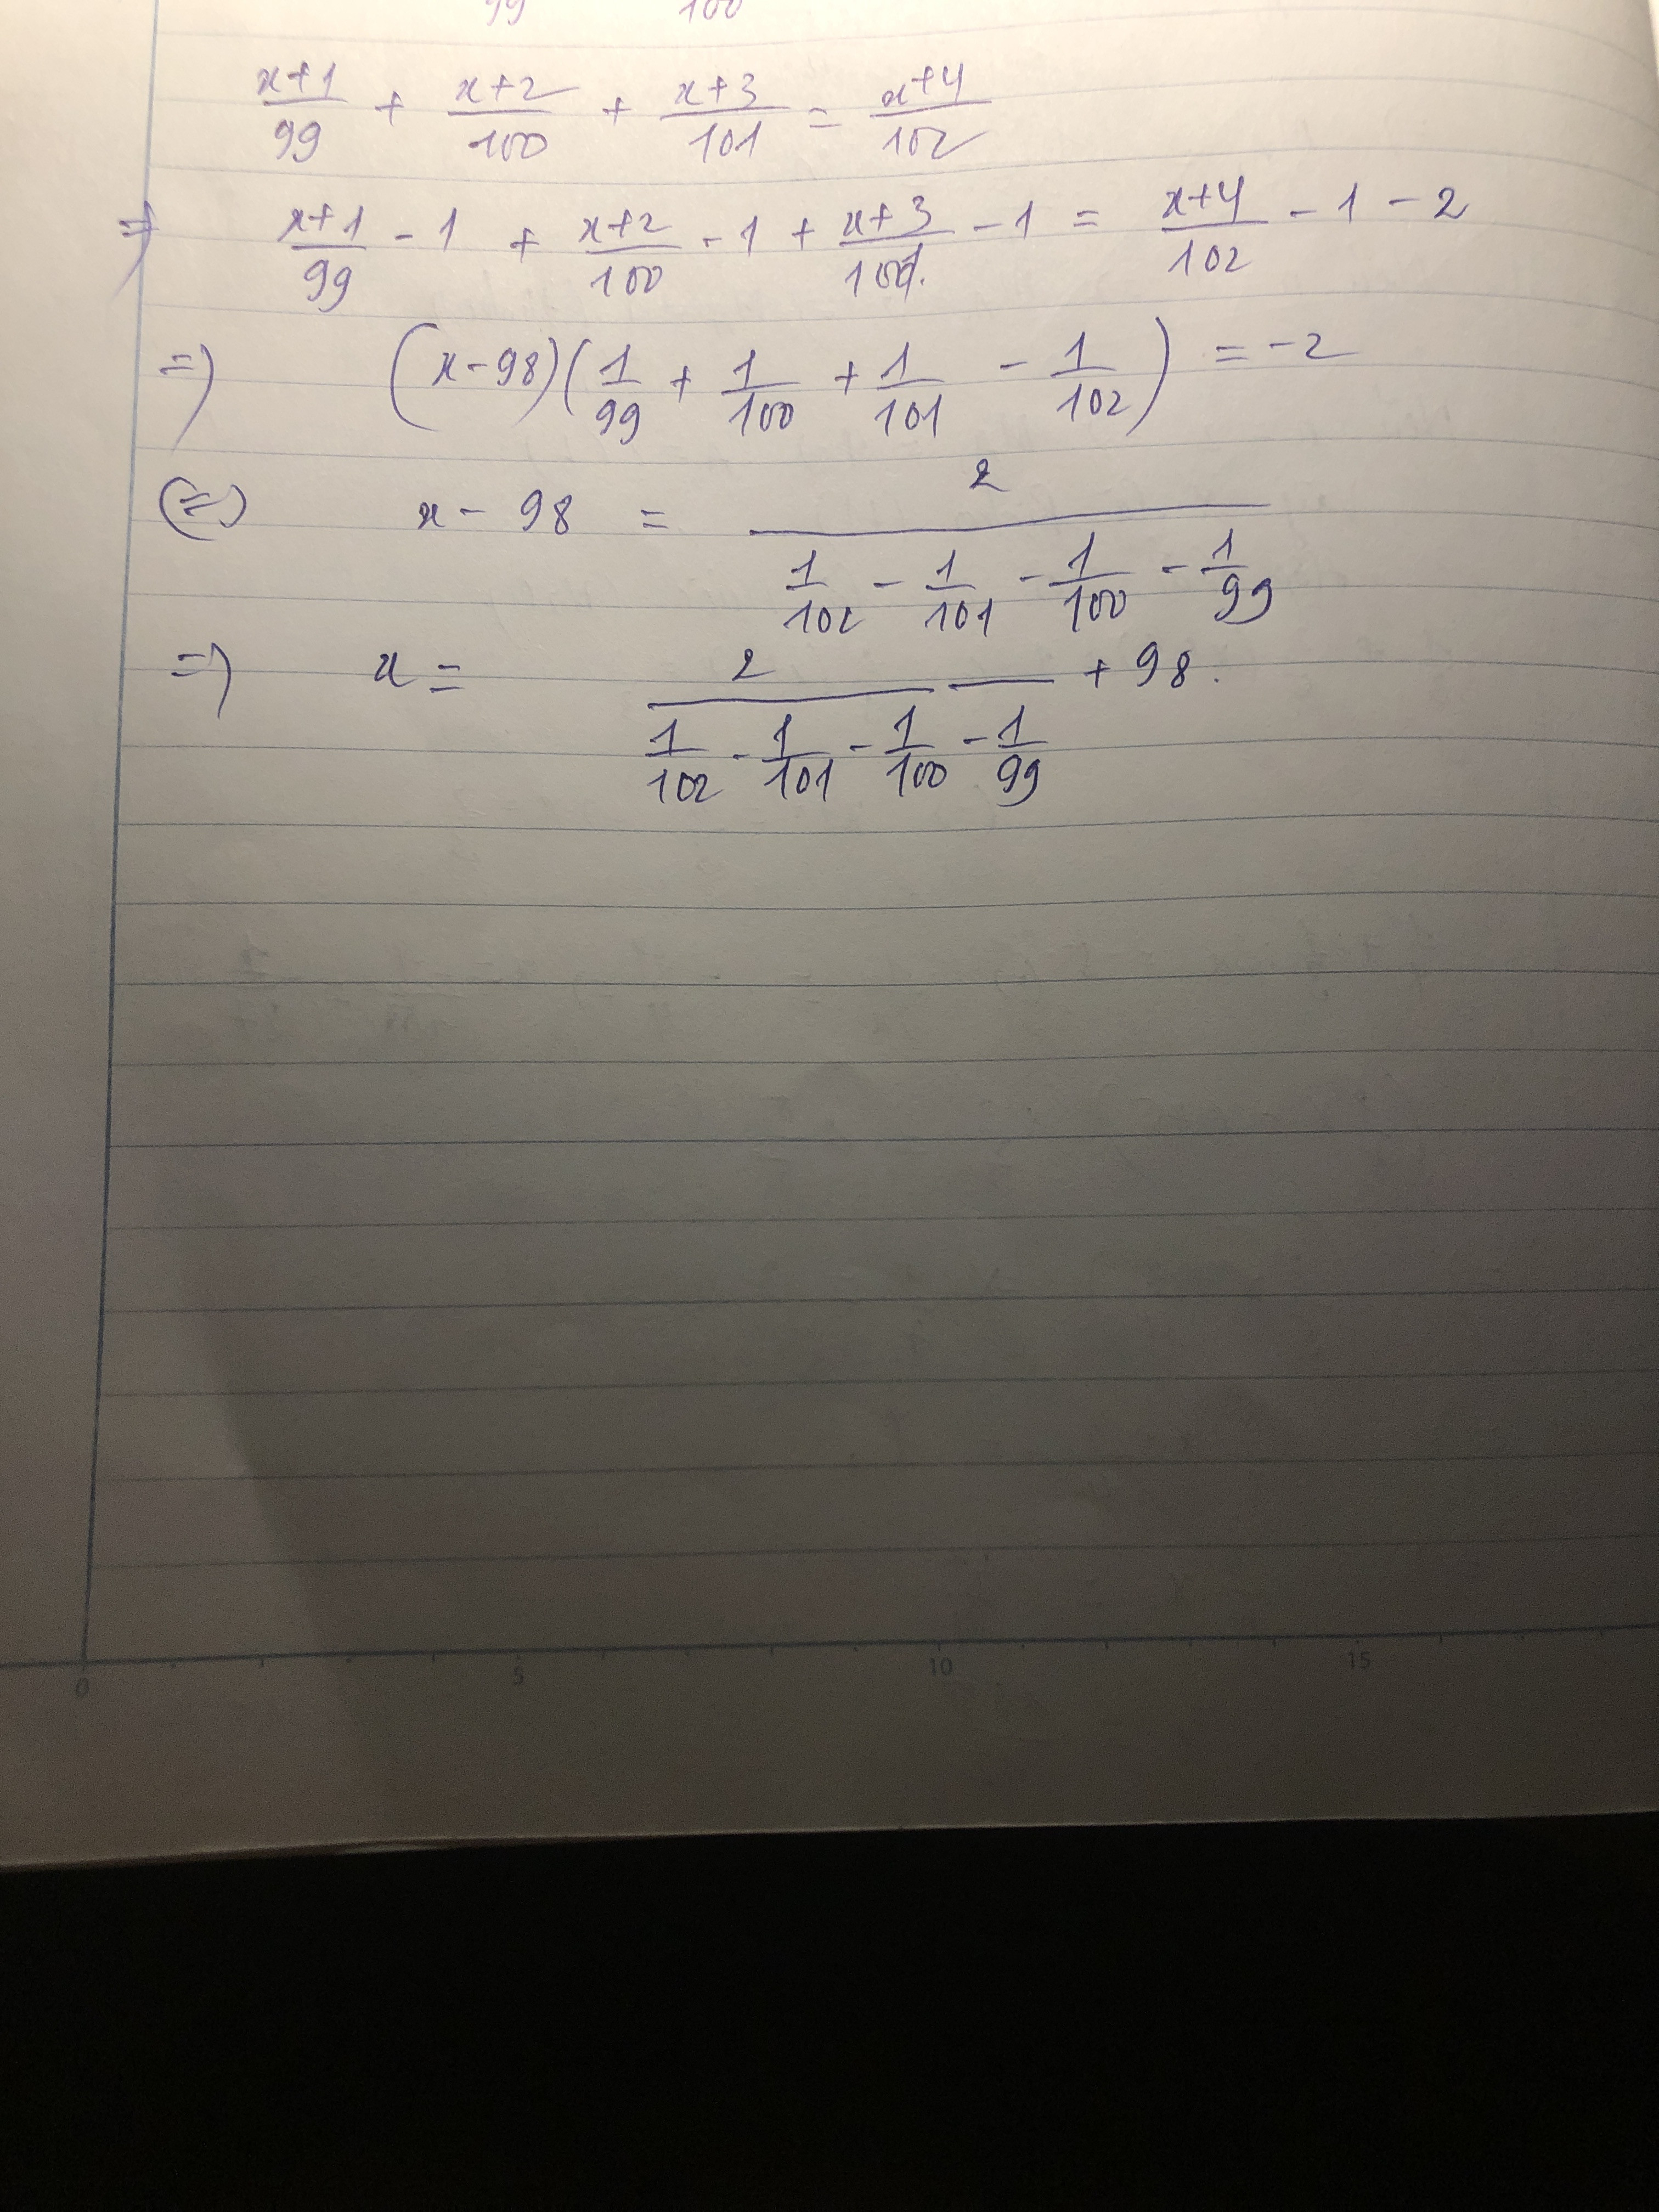 99 100
x+1/99 + x+2/100 + x+3/101 = x+4/102
=> x+1/99 - 1 + x+2/100 - 1 + x+3/101 - 1 = x+4/102 - 1 - 2
=> (x-98)(1/99 + 1/100 + 1/101 - 1/102) = -2
(=) x - 98 = 2/(1/102 - 1/101 - 1/100 - 1/99)
=> x = 2/(1/102 - 1/101 - 1/100 - 1/99) + 98.
0 5 10 15